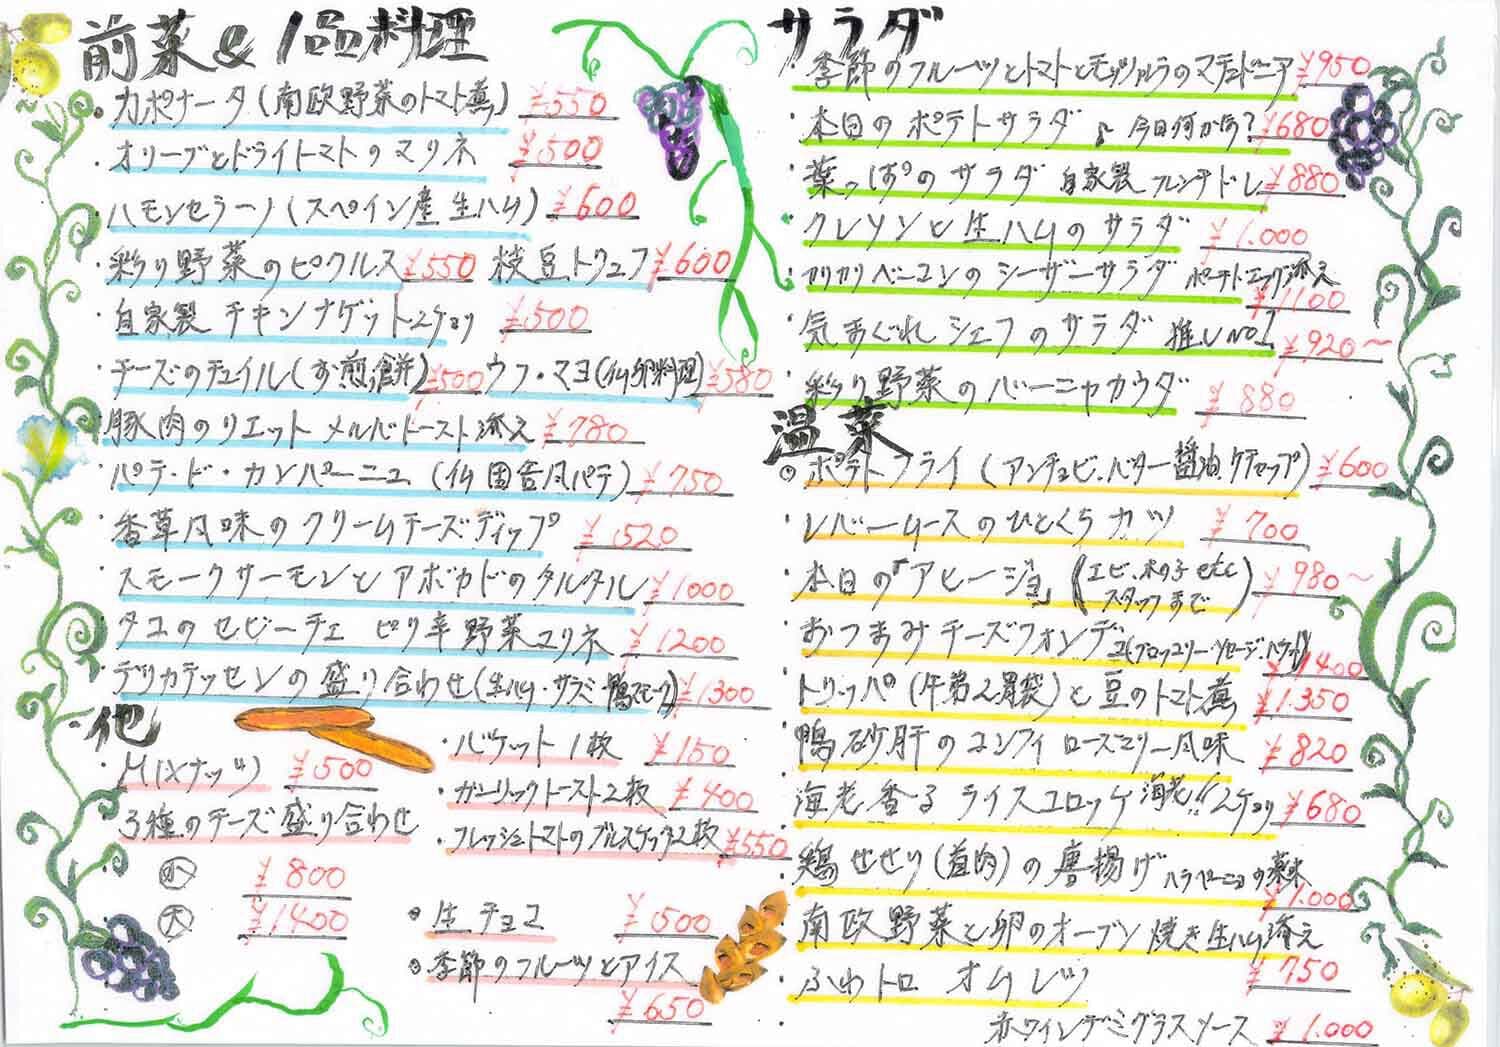 前菜& 1品料理
・カポナータ(南欧野菜のトマト煮) ¥550
・オリーブとドライトマトのマリネ ¥500
・ハモンセラーノ(スペイン産生ハム) ¥600
・彩り野菜のピクルス ¥550 枝豆トリュフ ¥600
・自家製チキンナゲット2ケヨリ ¥500
・チーズのチュイル(お煎餅) ¥500 ウフ・マヨ(仏卵料理) ¥580
・豚肉のリエット メルバトースト添え ¥780
・パテ・ド・カンパーニュ(仏田舎風パテ) ¥750
・香草風味のクリームチーズディップ ¥520
・スモークサーモンとアボカドのタルタル ¥1000
・タコのセビーチェ ピリ辛野菜マリネ ¥1200
・デリカテッセンの盛り合わせ(生ハム・サラミ・鴨スモーク) ¥1300
・他
・MIXナッツ ¥500
・3種のチーズ盛り合わせ
・小 ¥800
・大 ¥1400
・バケット1枚 ¥150
・ガーリックトースト2枚 ¥400
・フレッシュトマトのブルスケッタ2枚 ¥550
・生チョコ ¥500
・季節のフルーツとアイス
¥650
サラダ
・季節のフルーツとトマトとモッツァレラのマチェドニア ¥950
・本日のポテトサラダ ♪今日何かな? ¥680
・葉っぱのサラダ 自家製フレンチドレ ¥880
・クレソンと生ハムのサラダ ¥1.000
・カリカリベーコンのシーザーサラダ ポーチドエッグ添え
¥1100
・気まぐれシェフのサラダ 推しNo1 ¥920~
・彩り野菜のバーニャカウダ ¥880
温菜
・ポテトフライ(アンチョビ.バター醤油.ケチャップ) ¥600
・レバームースのひとくちカツ ¥700
・本日の「アヒージョ」(エビ.木の子etc ¥980~
スタッフまで)
・おつまみチーズフォンデュ(ブロッコリー・ソセージ・バケット)
¥1400
・トリッパ(牛第2胃袋)と豆のトマト煮 ¥1.350
・鴨砂肝のコンフィ ローズマリー風味 ¥820
・海老香るライスコロッケ 海老!!2ケヨリ ¥680
・鶏せせり(首肉)の唐揚げ ハラペーニョの薬味
¥1.000
・南欧野菜と卵のオーブン焼き生ハム添え
¥750
・ふわトロ オムレツ
・赤ワインデミグラスソース ¥1.000